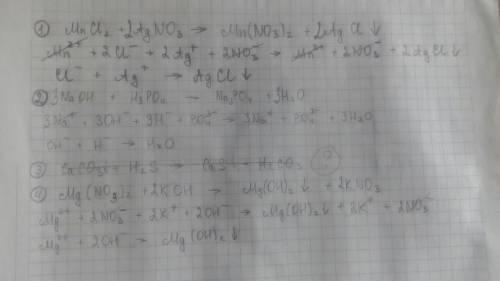 ① MnCl₂ + 2AgNO₃ → Mn(NO₃)₂ + 2AgCl↓
Mn²⁺ + 2Cl⁻ + 2Ag⁺ + 2NO₃⁻ → Mn²⁺ + 2NO₃⁻ + 2AgCl↓
Cl⁻ + Ag⁺ → AgCl↓
② 3NaOH + H₃PO₄ → Na₃PO₄ + 3H₂O
3Na⁺ + 3OH⁻ + 3H⁺ + PO₄³⁻ → 3Na⁺ + PO₄³⁻ + 3H₂O
OH⁻ + H⁺ → H₂O
③ CaCO₃ + H₂S → CaS + H₂CO₃ ?
④ Mg(NO₃)₂ + 2KOH → Mg(OH)₂↓ + 2KNO₃
Mg²⁺ + 2NO₃⁻ + 2K⁺ + 2OH⁻ → Mg(OH)₂↓ + 2K⁺ + 2NO₃⁻
Mg²⁺ + 2OH⁻ → Mg(OH)₂↓